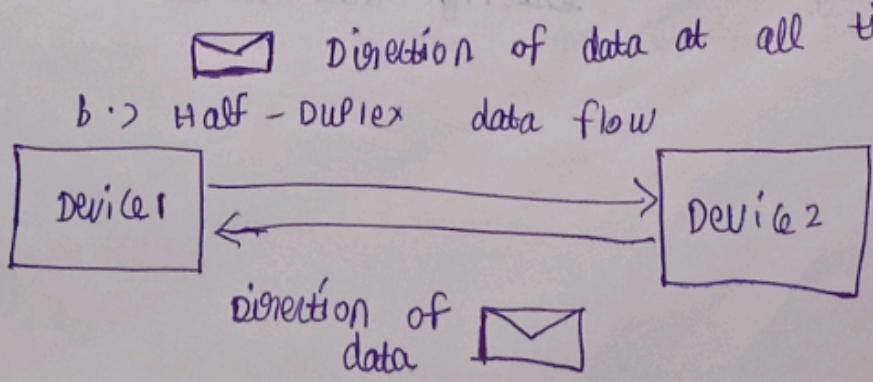 Direction of data at all
b.> Half-Duplex data flow
Device1
Device2
Direction of
data